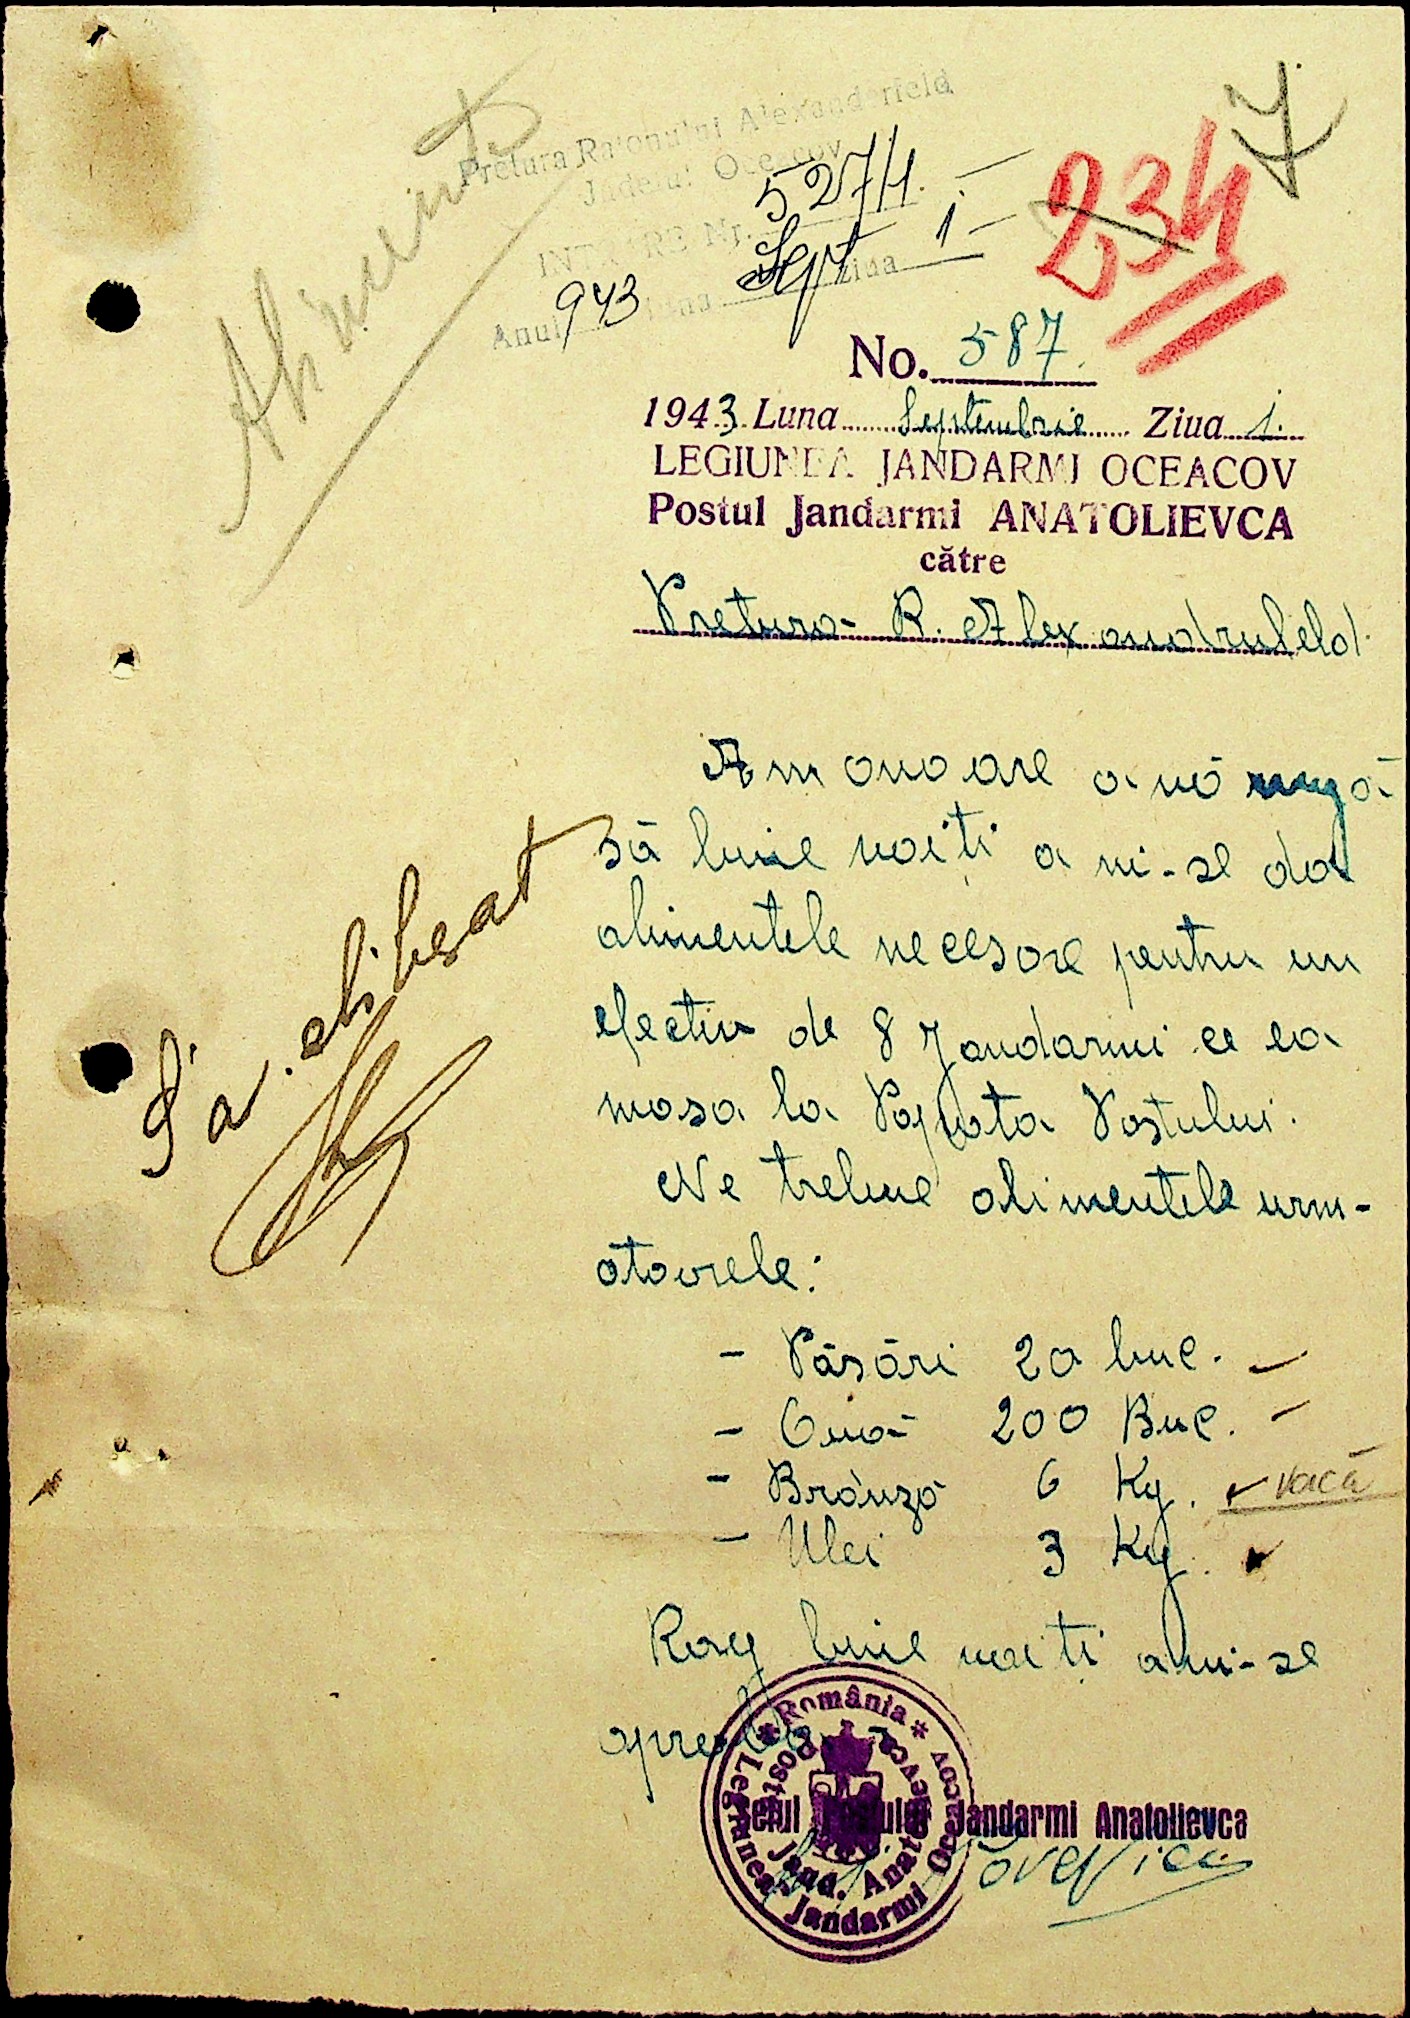 Alimente
Pretura Raionului Alexanderfeld
Județul Oceacov
INTRARE Nr. 5274.
Anul 943 luna Sept ziua 1
234
7
No. 587.
1943 Luna Septembrie Ziua 1.
LEGIUNEA JANDARMI OCEACOV
Postul Jandarmi ANATOLIEVCA
către
Pretura R. Alexandrufeld.
Am onoare a vă rugă
să buie voiți a ni-se da
alimentele necesare pentru un
efectiv de 8 Jandarmi ce ea
masa la Popota Postului.
Ne trebue alimentele urm-
ătoarele:
- Păsări 20 buc.
- Ouă 200 Buc.
- Brânză 6 Kg. vacă
- Ulei 3 Kg.
Rog buie voiți a ni-se
aproba.
S'a eliberat
Șeful Postului Jandarmi Anatolievca
* România *
Legiunea Jandarmi Oceacov
Post Jand. Anatolievca